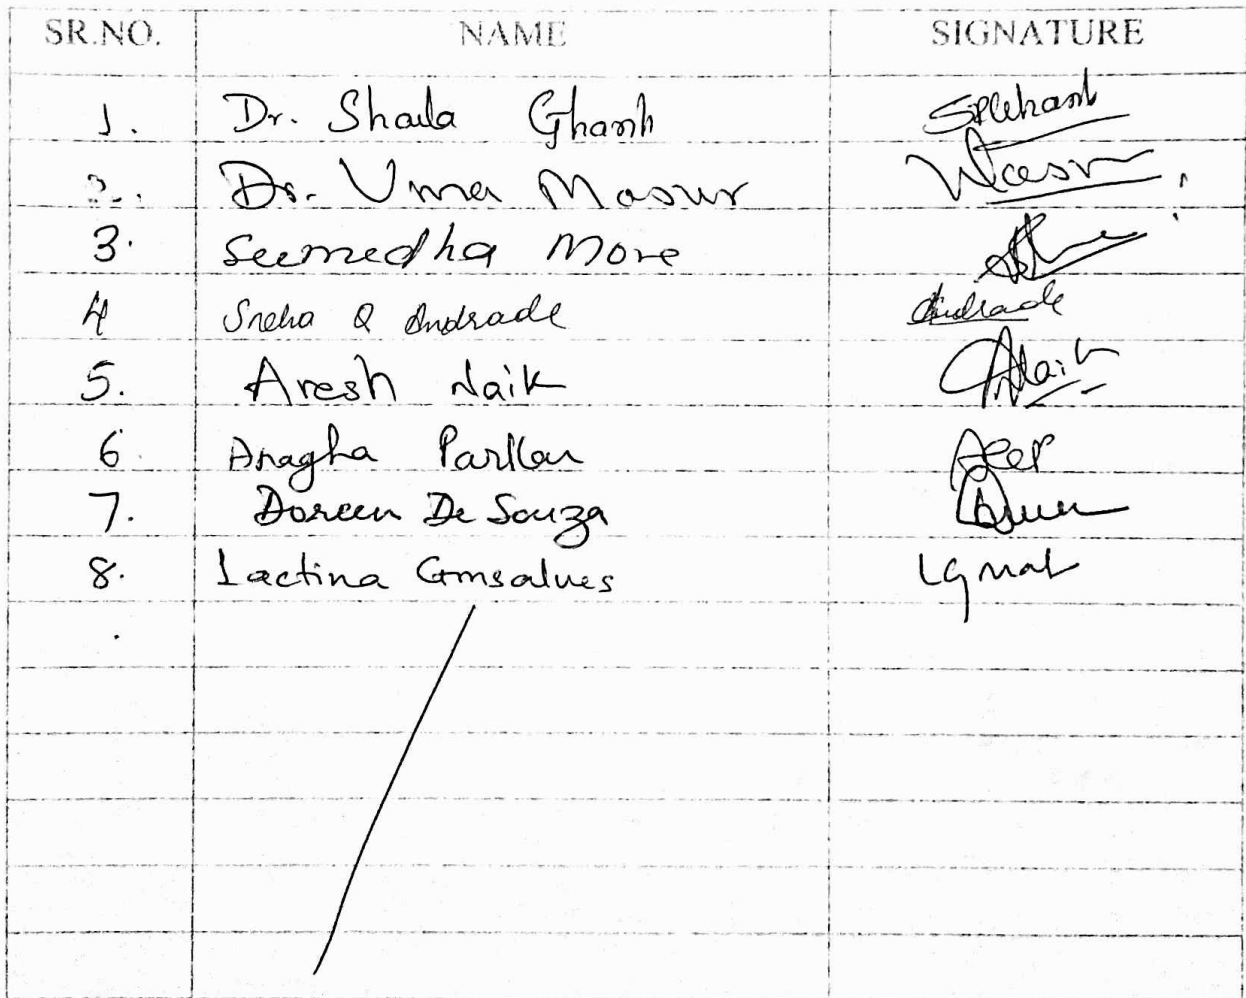 SR.NO. NAME SIGNATURE
1. Dr. Shaila Ghanti
2. Dr. Uma Masur
3. Sumedha More
4 Sneha Q Andrade Andrade
5. Aresh Naik Naik
6 Anagha Parkar
7. Doreen De Souza
8. Lactina Gonsalves